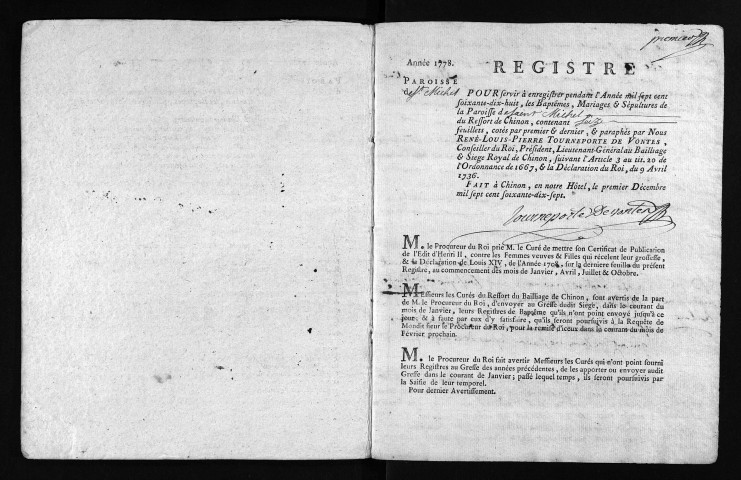 premier
Année 1778.
REGISTRE
PAROISSE
de St Michel
POUR servir à enregistrer pendant l'Année mil sept cent
soixante-dix-huit, les Baptêmes, Mariages & Sépultures de
la Paroisse de Saint Michel
du Ressort de Chinon, contenant Six
feuillets, cotés par premier & dernier, & paraphés par Nous
RENÉ-LOUIS-PIERRE TOURNEPORTE DE VONTES,
Conseiller du Roi, Président, Lieutenant-Général au Bailliage
& Siege Royal de Chinon, suivant l'Article 3 au tit. 20 de
l'Ordonnance de 1667, & la Déclaration du Roi, du 9 Avril
1736.
FAIT à Chinon, en notre Hôtel, le premier Décembre
mil sept cent soixante-dix-sept.
Tourneporte De vontes
M. le Procureur du Roi prie M. le Curé de mettre son Certificat de Publication
de l'Edit d'Henri II, contre les Femmes veuves & Filles qui récelent leur grossesse,
& la Déclaration de Louis XIV, de l'Année 1708, sur la derniere feuille du présent
Registre, au commencement des mois de Janvier, Avril, Juillet & Octobre.
MEssieurs les Curés du Ressort du Bailliage de Chinon, sont avertis de la part
de M. le Procureur du Roi, d'envoyer au Greffe dudit Siege, dans le courant du
mois de Janvier, leurs Registres de Baptême qu'ils n'ont point envoyé jusqu'à ce
jour; & à faute par eux d'y satisfaire, qu'ils seront poursuivis à la Requête de
Mondit sieur le Procureur du Roi, pour la remise d'iceux dans le courant du mois de
Février prochain.
M. le Procureur du Roi fait avertir Messieurs les Curés qui n'ont point fourni
leurs Registres au Greffe des années précédentes, de les apporter ou envoyer audit
Greffe dans le courant de Janvier; passé lequel temps, ils seront poursuivis par
la Saisie de leur temporel.
Pour dernier Avertissement.